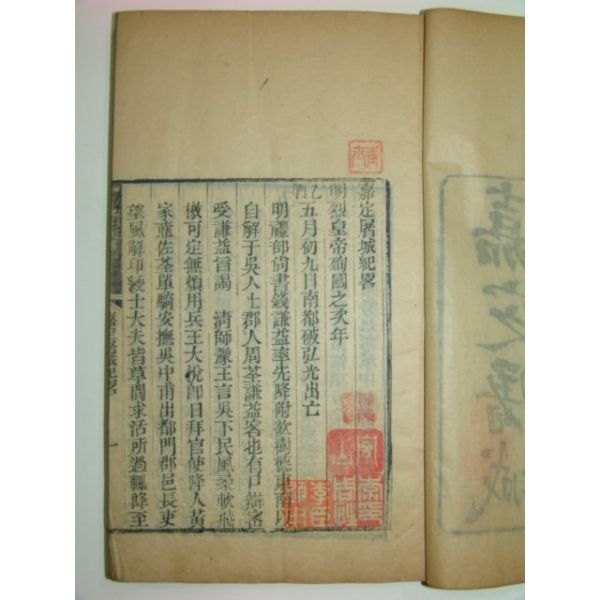 嘉定屠城紀畧
明烈皇帝殉國之次年
乙酉五月初九日南都破弘光出亡
明禮部尙書錢謙益率先降附欲樹德東南以
自解于吳人士郡人周荃謙益客也有口辯客
受謙益旨謁 淸師豫王言吳下民風柔軟飛
檄可定無煩用兵王大悅卽日拜官使降人黃
家鼒佐荃單騎安撫吳中甫出都門郡邑長吏
望風解印綬士大夫皆草間求活所過輒降至
一
嘉定屠城